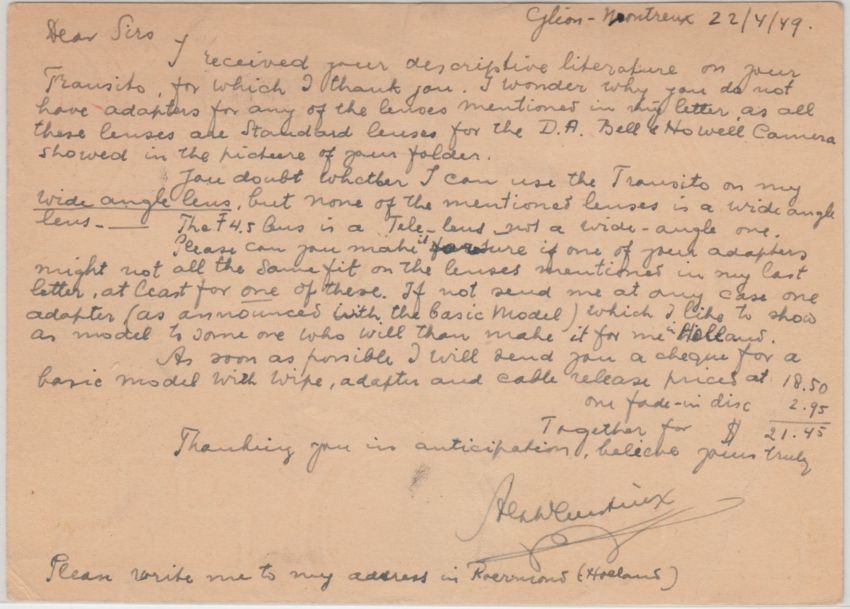 Glion-Montreux 22/4/49.
Dear Sirs
I received your descriptive literature on your
Transito, for which I thank you. I wonder why you do not
have adapters for any of the lenses mentioned in my letter, as all
these lenses are Standard lenses for the D.A. Bell & Howell Camera
showed in the picture of your folder.
You doubt whether I can use the Transito on my
wide angle lens, but none of the mentioned lenses is a wide angle
lens.- The F 4.5 lens is a Tele-lens not a wide-angle one.
Please can you make it sure if one of your adapters
might not all the same fit on the lenses mentioned in my last
letter, at least for one of these. If not send me at any case one
adapter (as announced with the basic Model) which I like to show
as model to some one who will than make it for me in Holland.
As soon as possible I will send you a cheque for a
basic model with wipe, adapter and cable release priced at 18.50
one fade-in disc 2.95
Together for $ 21.45
Thanking you in anticipation, believe yours truly
Please write me to my address in Roermond (Holland)